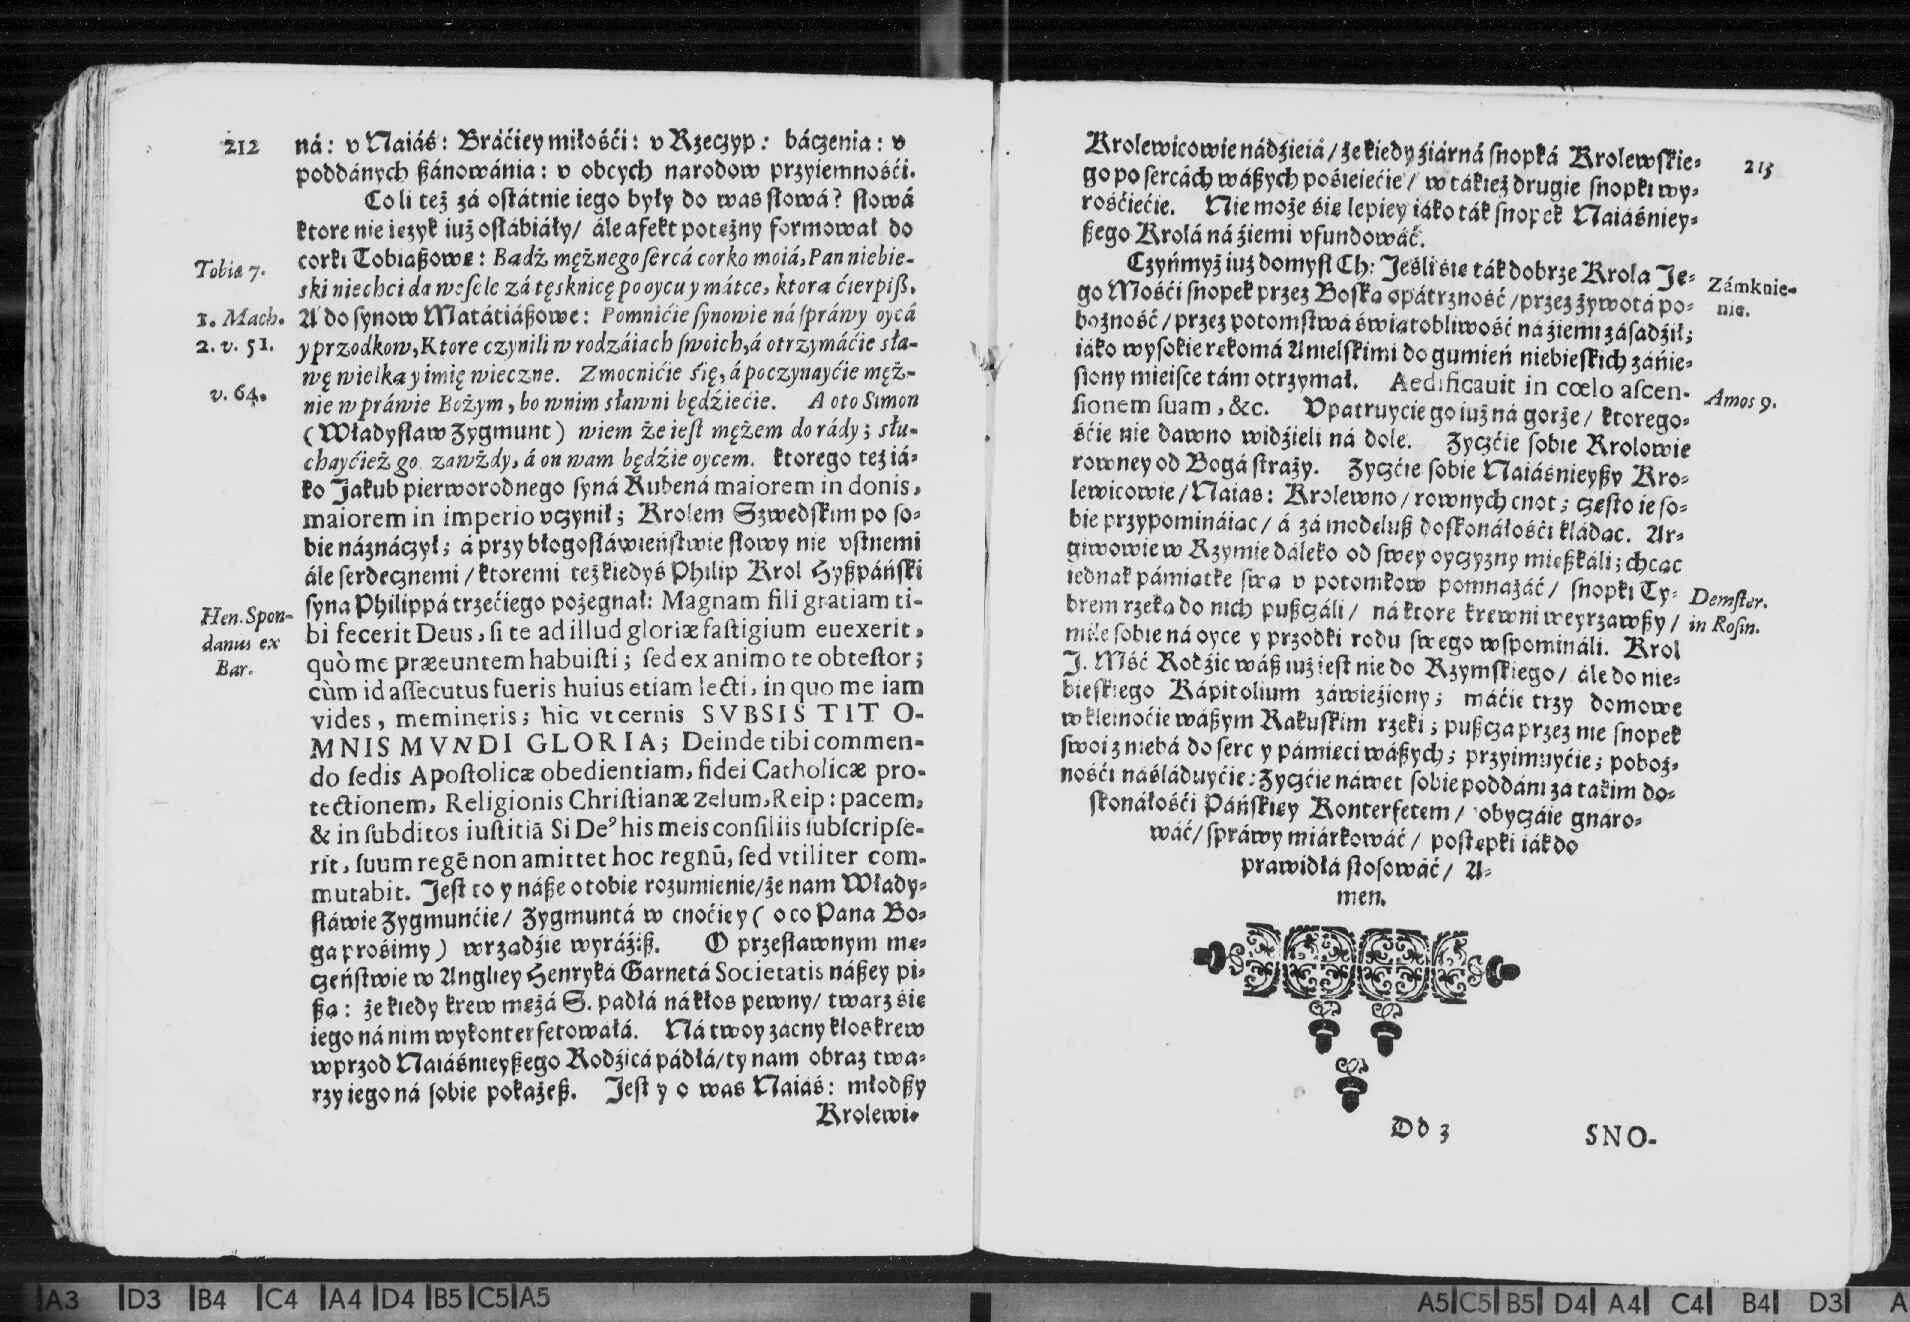 212
ná: v Naiáś: Bráćiey miłośći: v Rzeczyp: báczenia: v
poddánych ßánowánia: v obcych narodow przyiemnośći.
Co li też zá ostátnie iego były do was słowá? słowá
ktore nie ięzyk iuż osłábiáły/ ále afekt potężny formował do
corki Tobiaßowe: Bądź mężnego sercá corko moiá, Pan niebie-
ski niech ci da wesele zá tęsknicę po oycu y mátce, ktorą ćierpiß.
Tobiæ 7.
A do synow Matátiáßowe: Pomnićie synowie ná spráwy oycá
1. Mach.
y przodkow, Ktore czynili w rodzáiach swoich, á otrzymáćie sła-
2. v. 51.
wę wielką y imię wieczne. Zmocnićie się, á poczynayćie męż-
nie w práwie Bożym, bo w nim sławni będźiećie. A oto Simon
v. 64.
(Władysław Zygmunt) wiem że iest mężem do rády; słu-
chayćież go zawżdy, á on wam będźie oycem. ktorego też iá-
ko Jakub pierworodnego syná Rubená maiorem in donis,
maiorem in imperio vczynił; Krolem Szwedskim po so-
bie náznáczył; á przy błogosłáwieństwie słowy nie vstnemi
ále serdecznemi/ ktoremi też kiedyś Philip Krol Hyßpáński
syna Philippá trzećiego pożegnał: Magnam fili gratiam ti-
Hen. Spon-
danus ex
Bar.
bi fecerit Deus, si te ad illud gloriæ fastigium euexerit,
quò me præeuntem habuisti; sed ex animo te obtestor;
cùm id assecutus fueris huius etiam lecti, in quo me iam
vides, memineris; hic vt cernis SVBSISTIT O-
MNIS MVNDI GLORIA; Deinde tibi commen-
do sedis Apostolicæ obedientiam, fidei Catholicæ pro-
tectionem, Religionis Christianæ zelum, Reip: pacem,
& in subditos iustitiā Si De⁹ his meis consiliis subscripse-
rit, suum regē non amittet hoc regnū, sed vtiliter com-
mutabit. Jest to y náße o tobie rozumienie/ że nam Włady-
sławie Zygmunćie/ Zygmuntá w cnoćie y (o co Pana Bo-
ga prośimy) w rządźie wyráźiß. O przesławnym mę-
czeństwie w Angliey Henryká Garnetá Societatis náßey pi-
ßą: że kiedy krew mężá S. padłá ná kłos pewny/ twarz się
iego ná nim wykonterfetowáłá. Ná twoy zacny kłos krew
wprzod Naiáśnieyßego Rodźicá pádłá/ ty nam obraz twa-
rzy iego ná sobie pokażeß. Jest y o was Naiáś: młodßy
Krolewi-
213
Krolewicowie nádźieiá/ że kiedy źiárná snopká Krolewskie-
go po sercách wáßych pośieiećie/ w tákież drugie snopki wy-
rośćiećie. Nie może się lepiey iáko ták snopek Naiáśniey-
ßego Krolá ná źiemi vfundowáć.
Czyńmyż iuż domysł Ch: Jeśli się ták dobrze Krola Je-
Zámknie-
nie.
go Mośći snopek przez Boską opátrzność/ przez żywotá po-
bożność/ przez potomstwá świątobliwość ná źiemi zásadźił;
iáko wysokie rękomá Anielskimi do gumień niebieskich zánie-
siony mieisce tám otrzymał. Aedificavit in cœlo ascen-
Amos 9.
sionem suam, &c. Vpatruycie go iuż ná gorze/ ktorego-
śćie nie dawno widźieli ná dole. Zyczćie sobie Krolowie
rowney od Bogá straży. Zyczćie sobie Naiáśnieyßy Kro-
lewicowie/ Naias: Krolewno/ rownych cnot; często ie so-
bie przypomináiąc/ á zá modeluß doskonáłośći kłádąc. Ar-
giwowie w Rzymie dáleko od swey oyczyzny mießkáli; chcąc
iednak pámiątkę swą v potomkow pomnażáć/ snopki Ty-
Demster.
in Rosin.
brem rzeką do nich pußczáli/ ná ktore krewni weyrzawßy/
mile sobie ná oyce y przodki rodu swego wspomináli. Krol
J. Mść Rodźic wáß iuż iest nie do Rzymskiego/ ále do nie-
bieskiego Kápitolium záwieźiony; máćie trzy domowe
w kleinoćie wáßym Rakuskim rzeki; pußcza przez nie snopek
swoi z niebá do serc y pámięci wáßych; przyimuyćie; poboż-
nośći náśláduyćie: Zyczćie náwet sobie poddáni zá takim do-
skonáłośći Páńskiey Konterfetem/ obyczáie gnáro-
wáć/ spráwy miárkowáć/ postępki iák do
prawidłá stosowáć/ A-
men.
Dd 3
SNO-